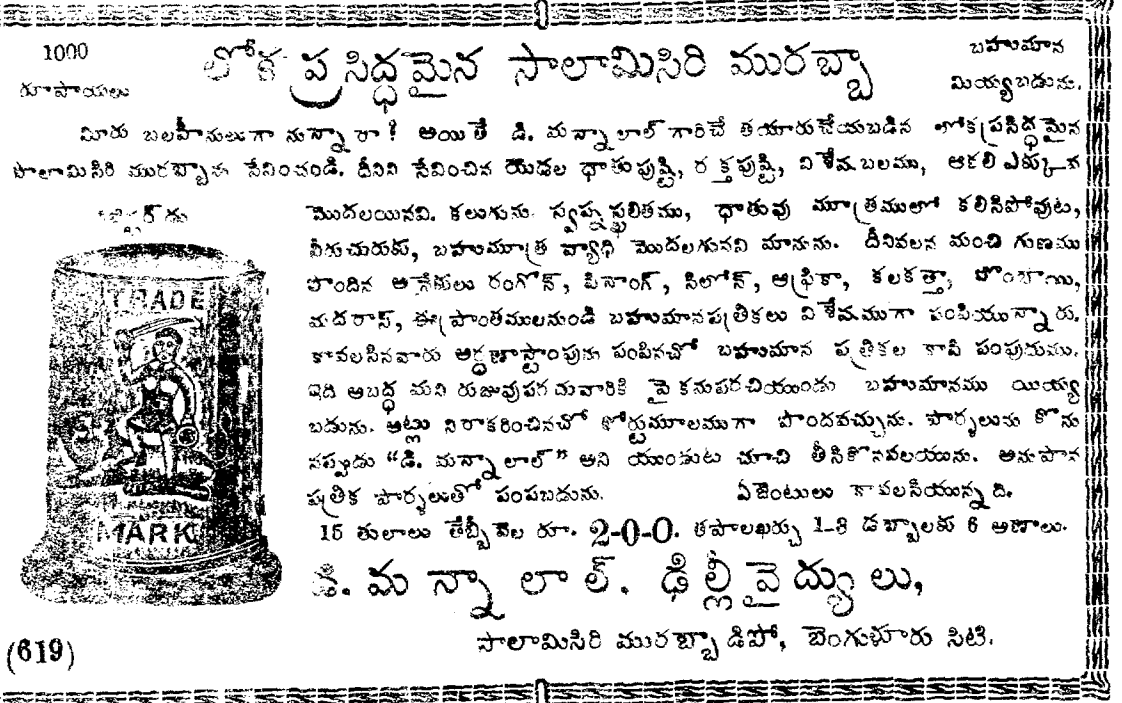 1000
రూపాయలు
లోక ప్రసిద్ధమైన సాలామిసిరి మురబ్బా
బహుమాన
మియ్యబడును.
మీరు బలహీనులుగా నున్నారా? అయితే డి. మన్నాలాల్ గారిచే తయారుచేయబడిన లోకప్రసిద్ధమైన
సాలామిసిరి మురబ్బాను సేవించండి. దీనిని సేవించిన యెడల ధాతుపుష్టి, రక్తపుష్టి, విశేషబలము, ఆకలి ఎక్కువ
రిజిష్టర్డు
మొదలయినవి. కలుగును. స్వప్నస్ఖలితము, ధాతువు మూత్రములో కలిసిపోవుట,
నీరుచురుకు, బహుమూత్ర వ్యాధి మొదలగునవి మానును. దీనివలన మంచి గుణము
పొందిన అనేకులు రంగోన్, పినాంగ్, సిలోన్, ఆఫ్రికా, కలకత్తా, బొంబాయి,
మదరాస్, ఈ ప్రాంతములనుండి బహుమానపత్రికలు విశేషముగా పంపియున్నారు.
కావలసినవారు అర్ధణాస్టాంపును పంపినచో బహుమాన పత్రికల కాపి పంపుదుము.
ఇది అబద్ధమని రుజువుపరచువారికి పై కనుపరచియుండు బహుమానము యియ్య
బడును. అట్లు నిరాకరించినచో కోర్టుమూలముగా పొందవచ్చును. పార్శలును కొను
నప్పుడు “డి. మన్నాలాల్” అని యుండుట చూచి తీసికొనవలయును. అనుపాన
పత్రిక పార్శలుతో పంపబడును. ఏజెంటులు కావలసియున్నది.
15 తులాలు తేబ్బీవెల రూ. 2-0-0. తపాలఖర్చు 1-3 డబ్బాలకు 6 అణాలు.
డి. మన్నాలాల్. ఢిల్లీవైద్యులు,
సాలామిసిరి మురబ్బా డిపో, బెంగుళూరు సిటి.
TRADE
MARK
(619)